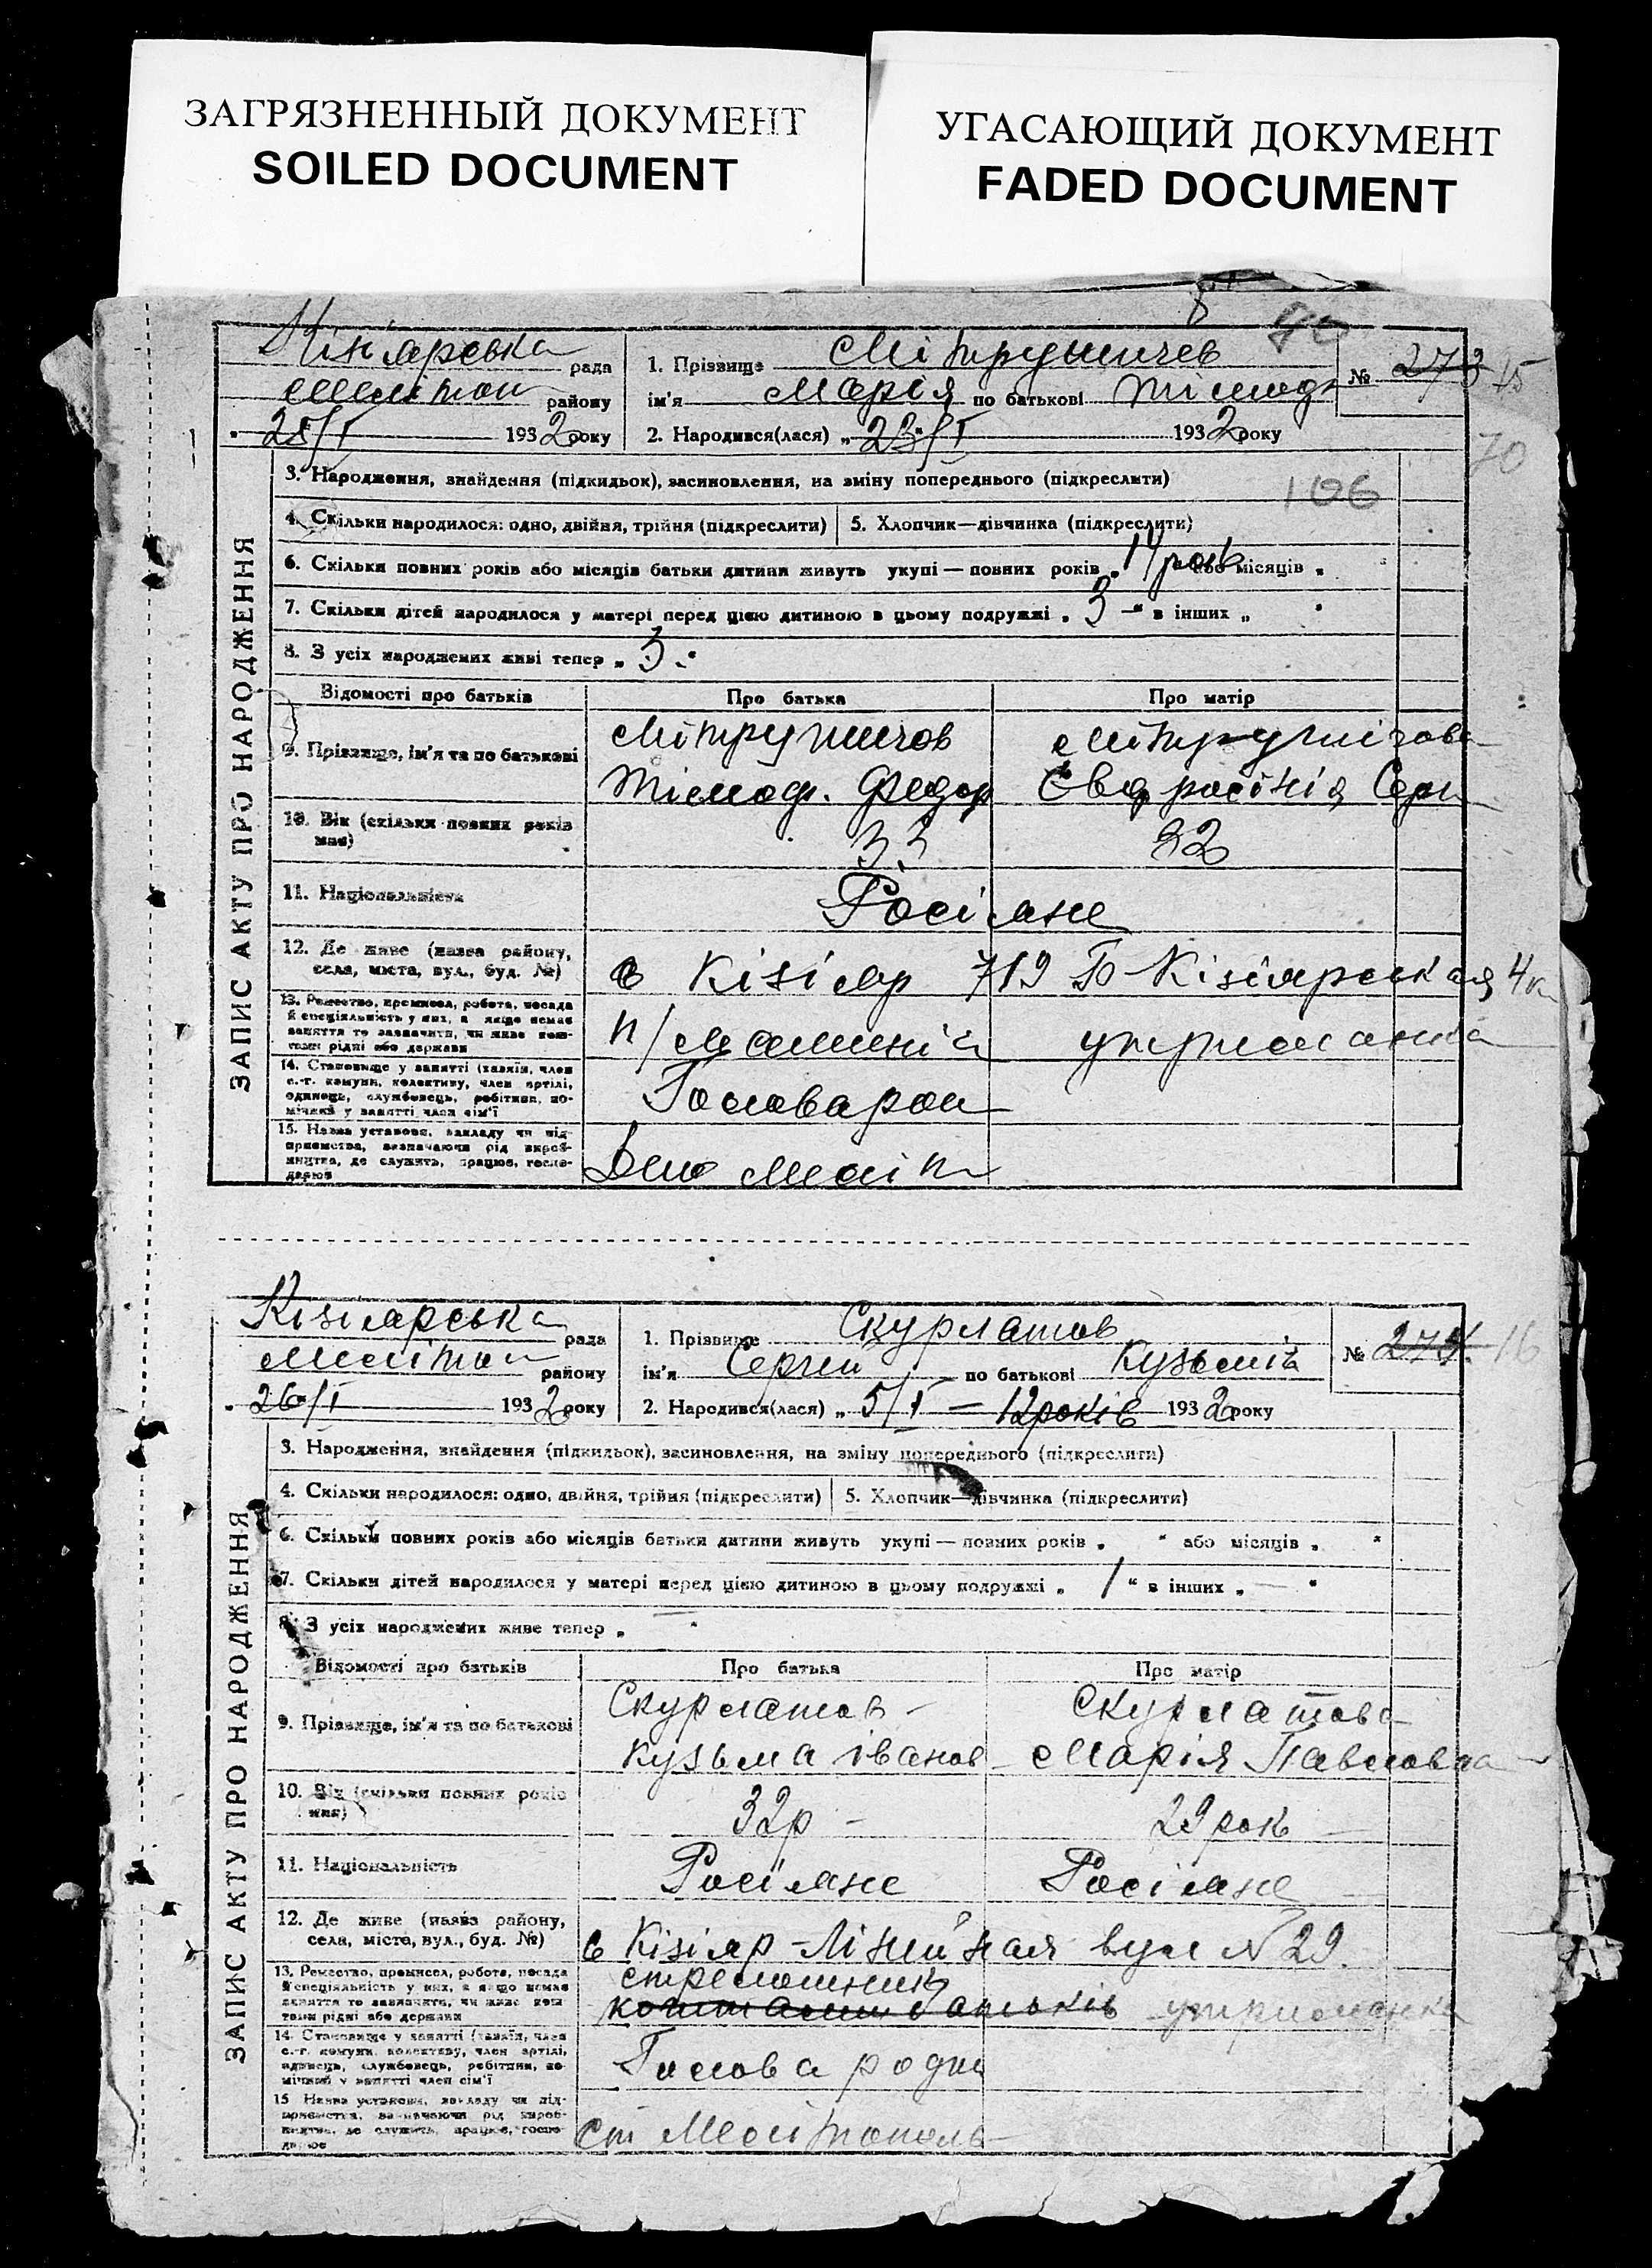 ЗАГРЯЗНЕННЫЙ ДОКУМЕНТ
SOILED DOCUMENT
УГАСАЮЩИЙ ДОКУМЕНТ
FADED DOCUMENT
ЗАПИС АКТУ ПРО НАРОДЖЕННЯ
рада
району
25/I 1932 року
1. Прізвище
№ 273 15
ім'я Марія по батькові Тімоф
2. Народився(лася) „23/I 1932 року
70
106
3. Народження, знайдення (підкидьок), засиновлення, на зміну попереднього (підкреслити)
4. Скільки народилося: одно, двійня, трійня (підкреслити)
5. Хлопчик—дівчинка (підкреслити)
6. Скільки повних років або місяців батьки дитини живуть укупі — повних років „14 рок або місяців „
7. Скільки дітей народилося у матері перед цією дитиною в цьому подружжі „ 3 —“ в інших „ “
8. З усіх народжених живі тепер „ 3 “
Відомості про батьків
Про батька
Про матір
9. Прізвище, ім'я та по батькові
Тімоф. Федор
10. Вік (скільки повних років має)
33
32
11. Національність
Росіяне
12. Де живе (назва району, села, міста, вул., буд. №)
с Кізіяр 719 Б-Кізіярская 4к
13. Ремество, промисел, робота, посада й спеціяльність у них, а якщо немає заняття то зазначити, чи живе коштами рідні або держави
14. Становище у занятті (хазяїн, член с.-г. комуни, колективу, член артілі, одинець, службовець, робітник, помічний у занятті член сім'ї
15. Назва установи, закладу чи підприємства, зазначаючи рід виробництва, де служить, працює, господарює
Депо Меліт
ЗАПИС АКТУ ПРО НАРОДЖЕННЯ
Кізіярська рада
Меліпол району
26/I 1932 року
1. Прізвище Скурлатов
№ 274 16
ім'я Сергій по батькові Кузьмів
2. Народився(лася) „ 5/I — 12 років 1932 року
3. Народження, знайдення (підкидьок), засиновлення, на зміну попереднього (підкреслити)
4. Скільки народилося: одно, двійня, трійня (підкреслити)
5. Хлопчик—дівчинка (підкреслити)
6. Скільки повних років або місяців батьки дитини живуть укупі — повних років „ “ або місяців „ “
7. Скільки дітей народилося у матері перед цією дитиною в цьому подружжі „ 1 “ в інших „ — “
8. З усіх народжених живе тепер „ — “
Відомості про батьків
Про батька
Про матір
9. Прізвище, ім'я та по батькові
Скурлатов -
Скурлатова
Кузьма Іванов
Марія Павловна
10. Вік (скільки повних років має)
32р -
29 рок
11. Національність
Росіяне
Росіяне
12. Де живе (назва району, села, міста, вул., буд. №)
с Кізіяр - Лінійная вул N 29.
13. Ремество, промисел, робота, посада й спеціяльність у них, а якщо немає заняття то зазначити, чи живе коштами рідні або держави
стрелошник
коштами батьків утриманка
14. Становище у занятті (хазяїн, член с.-г. комуни, колективу, член артілі, одинець, службовець, робітник, помічний у занятті член сім'ї
Голова родин
15. Назва установи, закладу чи підприємства, зазначаючи рід виробництва, де служить, працює, господарює
ст Мелітополь